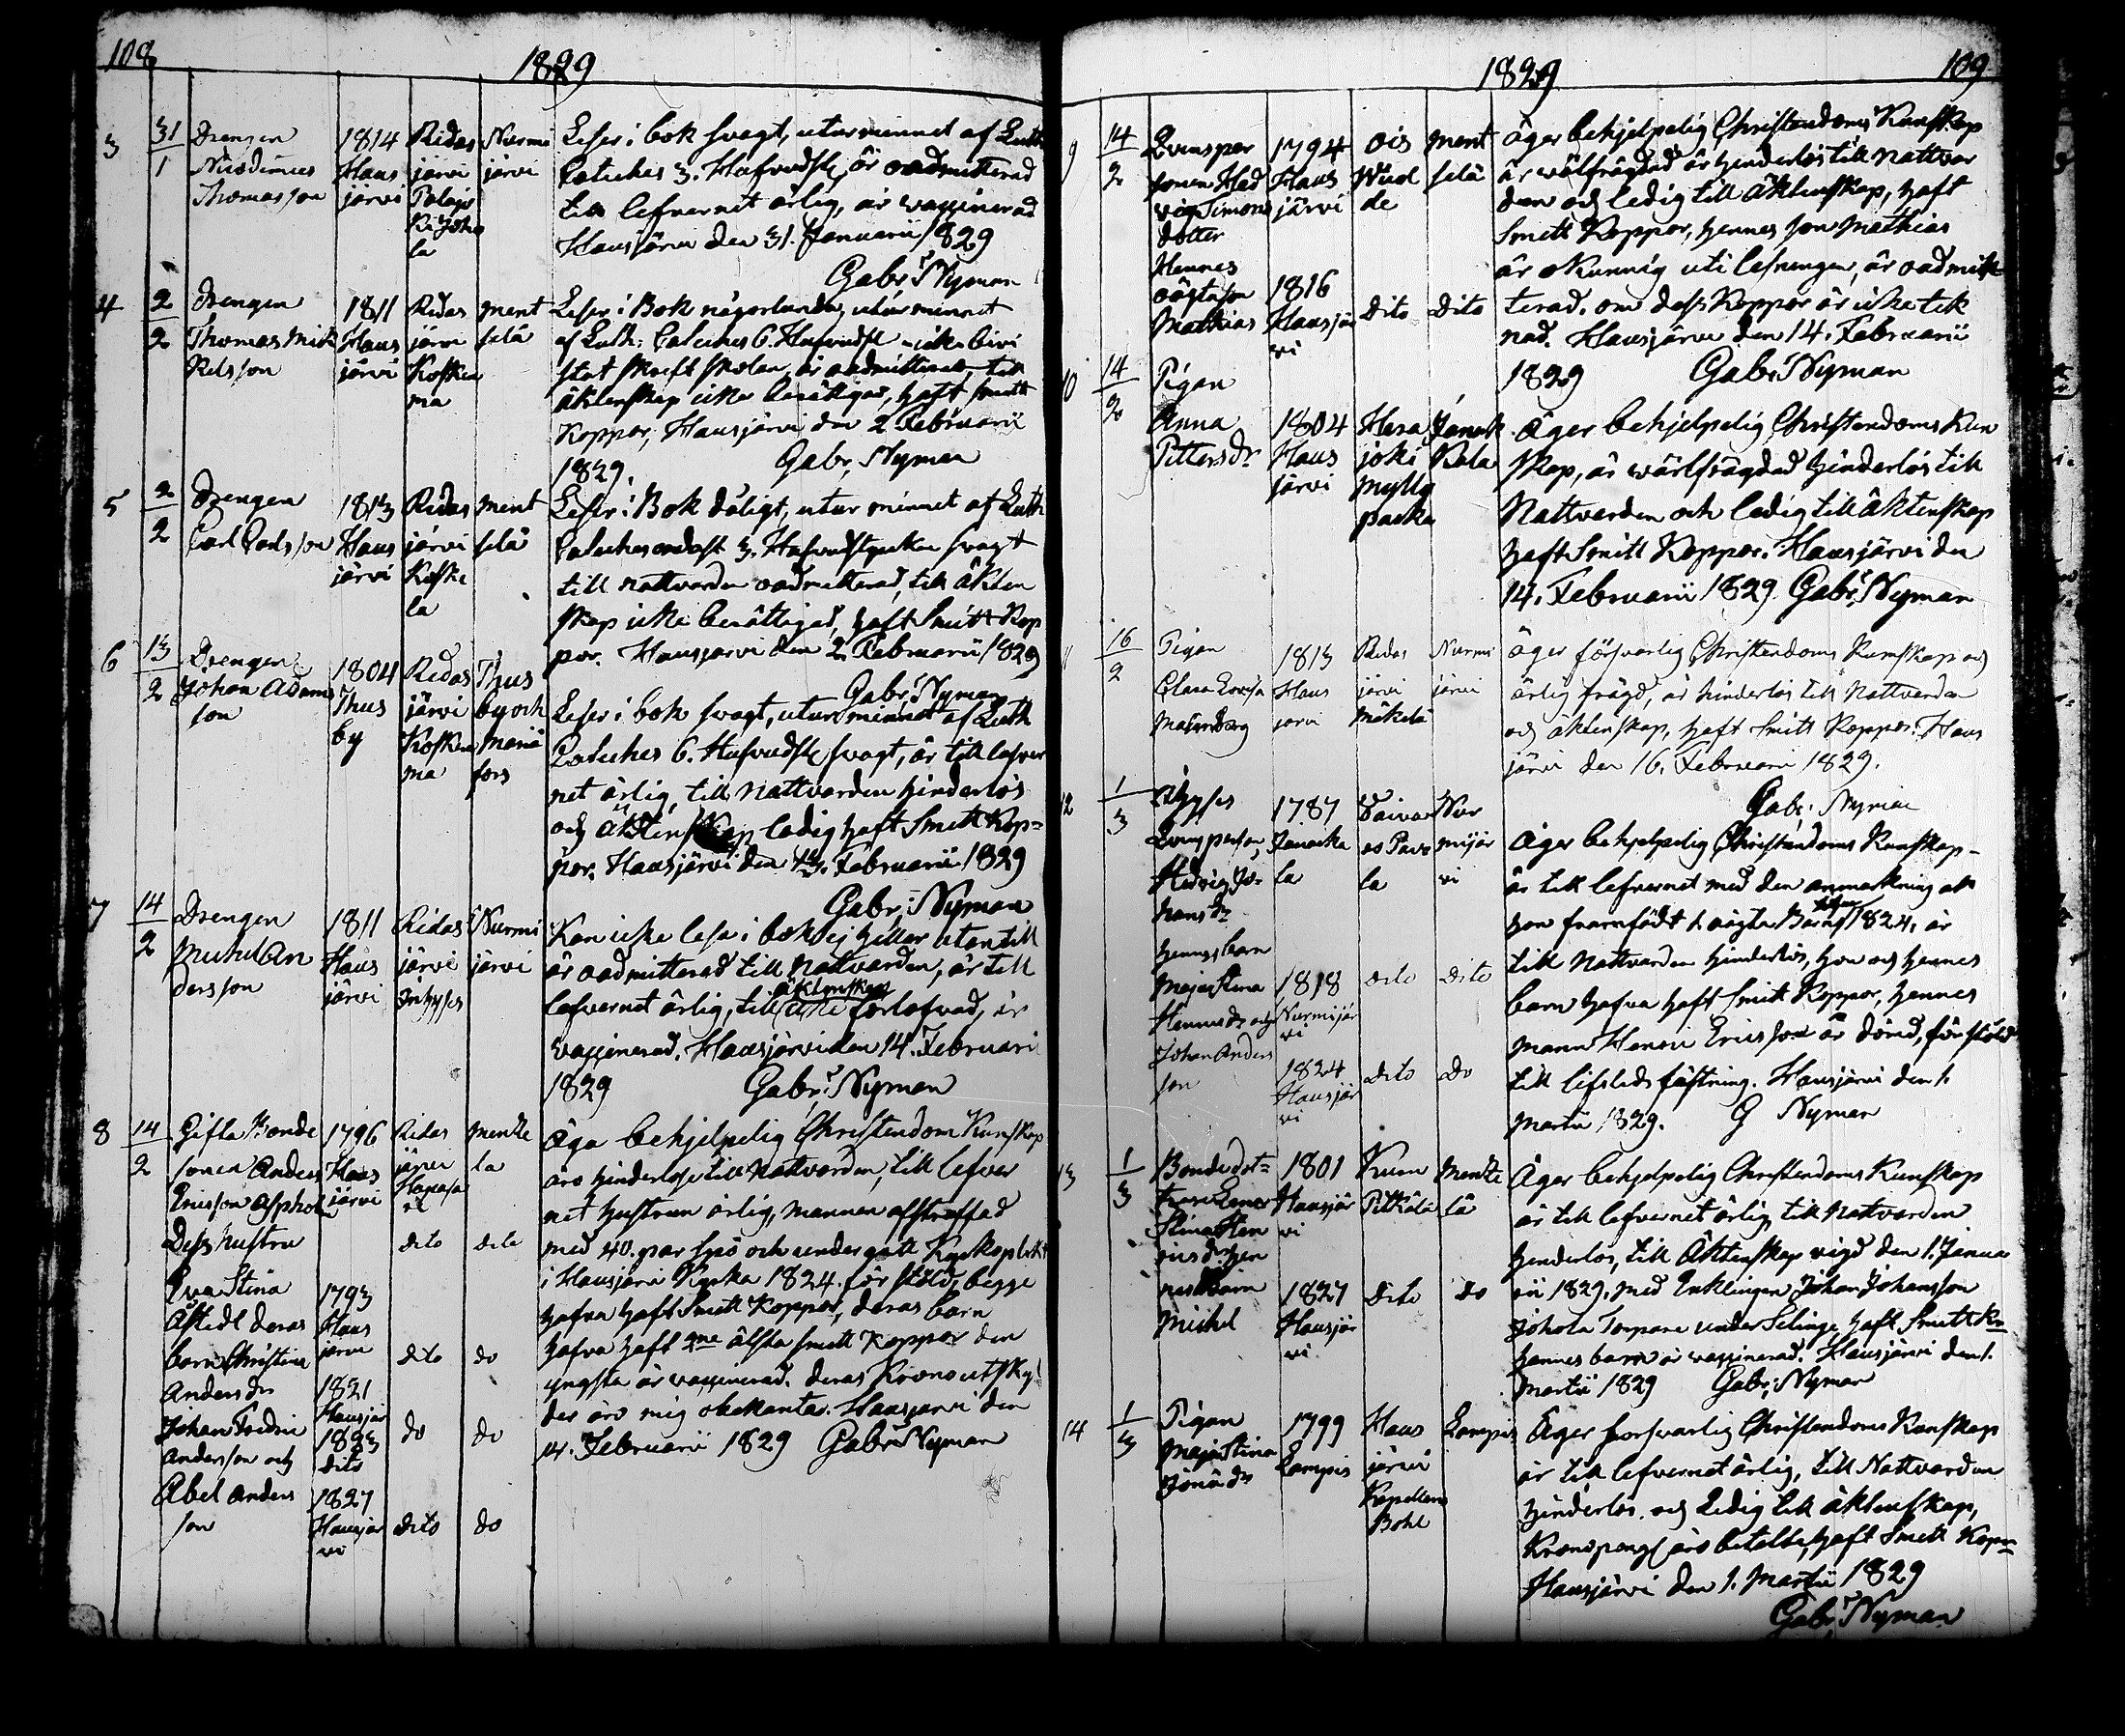 108
1829
3
31/1
Drengen
Thomasson
1814
Haus
järvi
Ridas
järvi
Nurmi
järvi
Leser i bok svagt, utur minnet af Luth
Cateches 3. Hufvudst, är oadmitterad
till lefvernet ärlig, är vaccinerad
Hausjärvi den 31. Januarii 1829
Gabr: Nyman
4
2/2
Drengen
Thomas Mik
kelsson
1811
Haus
järvi
Ridas
järvi
Kosken
ma
Ment
selä
Leser i Bok någorlunda, utur minnet
af Luth: Cateches 6. Hufvudst icke bivi
stat skrift skolan, är oadmitterad, till
äktenskap icke berättigad, haft smitt
koppor, Hausjärvi den 2 Februarii
1829.
Gabr. Nyman
5
2/2
Drengen
Carl Carlsson
1813
Haus
järvi
Ridas
järvi
Koske
la
Ment
selä
Leser i Bok dåligt, utur minnet af Luth
Cateches endast 3. Hufvudstycken svagt
till nattvarden oadmitterad, till äkten
skap icke berättigad, haft Smitt Kop
por. Hausjärvi den 2 Februarii 1829
Gabr: Nyman
6
13/2
Drengen
Johan Adams
son
1804
Thus
by
Ridas
järvi
Koskem
ma
Thus
by och
Mariæ
fors
Leser i bok svagt, utur minnet af Luth
Cateches 6. Hufvudst svagt, är till lefver
net ärlig, till Nattvarden hinderlös
och äktenskap ledig haft Smitt Kop=
por. Hausjärvi den 13. Februarii 1829
Gabr: Nyman
7
14/2
Drengen
Michel An
dersson
1811
Haus
järvi
Ridas
järvi
Inhyses
Nurmi
järvi
Kan icke lesa i bok ej heller utantill
är oadmitterad till Nattvarden, är till
äktenskap
lefvernet ärlig, till icke förlofvad, är
vaccinerad. Hausjärvi den 14. Februari
1829
Gabr: Nyman
8
14/2
Gifta Bonde
sonen Anders
Ericsson Aspholm
Dess hustru
Eva Stina
deras
barn Christina
Anders dr
Johan Fredric
Andersson och
Abel Anders
son
1796
Haus
järvi
1793
Haus
järvi
1821
Hausjär
1823
dito
1827
Hausjär
vi
Ridas
järvi
dito
dito
do
dito
Mentse
la
dito
do
do
do
Äga behjelpelig Christendoms Kunskap
äro hinderlöse till Nattvarden, till lefver
net hustrun ärlig, mannen afstraffad
med 40. par spö och undergått Kyrkoplikt
i Hausjärvi Kyrka 1824. för stöld, begge
hafva haft Smitt Koppor, deras barn
hafva haft 2ne älsta smitt Koppor den
yngsta är vaccinerad. deras Krono utsky
der äro mig obekanta. Hausjärvi den
14. Februarii 1829 Gabr: Nyman
1829
109
9
14/2
Hed
vig Simons
dotter
Hennes
oägta son
Mathias
1794
Haus
järvi
1816
Hausjär
vi
Ois
de
Dito
Ment
selä
Dito
Äger behjelpelig Christendoms Kunskap
är wälfrägdad är hinderlös till Nattvar
den och ledig till Äktenskap, haft
Smitt Koppor, hennes son Mathias
är okunnig uti lesningen, är oadmit
terad. om dess Koppor är icke tek
nad. Hausjärvi den 14. Februarii
1829
Gabr: Nyman
10
14/2
Pigan
Anna
Pitters dr
1804
Haus
järvi
Hera
joki
Mylly
backa
Janak
kala
Äger behjelpelig Christendoms Kun
skap, är wälfrägdad hinderlös till
Nattvarden och ledig till Äktenskap
haft Smitt Koppor. Hausjärvi den
14. Februarii 1829 Gabr: Nyman
11
16/2
Pigan
Clara Lovisa
1813
Haus
järvi
Ridas
järvi
Mäkelä
Nurmi
järvi
Äger försvarlig Christendoms Kunskap och
ärlig frägd, är hinderlös till Nattvarden
och äktenskap, haft Smitt Koppor. Haus
järvi den 16. Februarii 1829.
Gabr: Nyman
12
1/3
Hedvig Jo
hans dr
hennes barn
Maja Stina
Henrics dr och
Johan Anders
son
1787
Janacka
la
1818
Nurmijär
vi
1824
Hausjär
vi
la
dito
dito
Nur
mijär
vi
dito
do
Äger behjelpelig Christendoms Kunskap
är till lefvernet med den anmärkning att
hon framfödt 1 oägta Barn 1824, är
till Nattvarden hinderlös, hon och hennes
barn hafva haft Smitt Koppor, hennes
mann Henric Ericsson är dömd, för stöld
till lifstids fästning. Hausjärvi den 1.
Martii 1829. G Nyman
13
1/3
Bondedot=
Stina
barn
Michel
1801
Hausjär
vi
1827
Hausjär
vi
Pitkälä
dito
Mentse
lä
do
Äger behjelpelig Christendoms Kunskap
är till lefvernet ärlig till Nattvarden
hinderlös, till Äktenskap vigd den 1. Janua
rii 1829. med Enklingen Johan Johansson
Johola Torpare under haft Smitt Ko
hennes barn är vaccinerad. Hausjärvi den 1.
Martii 1829 Gabr: Nyman
14
1/3
Pigan
Maja Stina
1799
Lampis
Haus
järvi
Kapellans
Bohl
Lampis
Äger försvarlig Christendoms Kunskap
är till lefvernet ärlig, till Nattvarden
hinderlös och Ledig till äktenskap,
äro betalte, haft Smitt Kopp
Hausjärvi den 1. Martii 1829
Gabr: Nyman